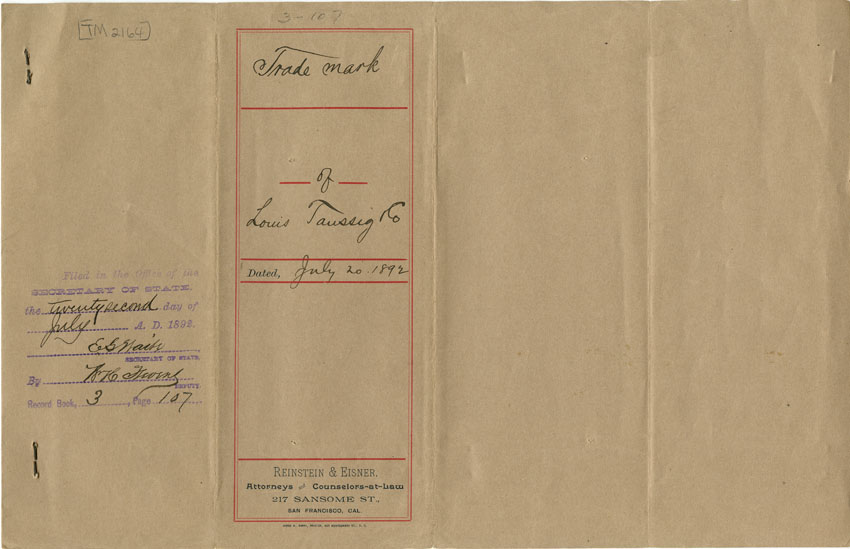 [TM 2164]
3-107
Trade mark
of
Louis Taussig & Co
Dated, July 20 1892
Filed in the Office of the
SECRETARY OF STATE.
the twenty second day of
July A. D. 1892.
E G Waite
SECRETARY OF STATE.
By W H
DEPUTY.
Record Book, 3, Page 107
REINSTEIN & EISNER,
Attorneys and Counselors-at-Law
217 SANSOME ST.,
SAN FRANCISCO, CAL.